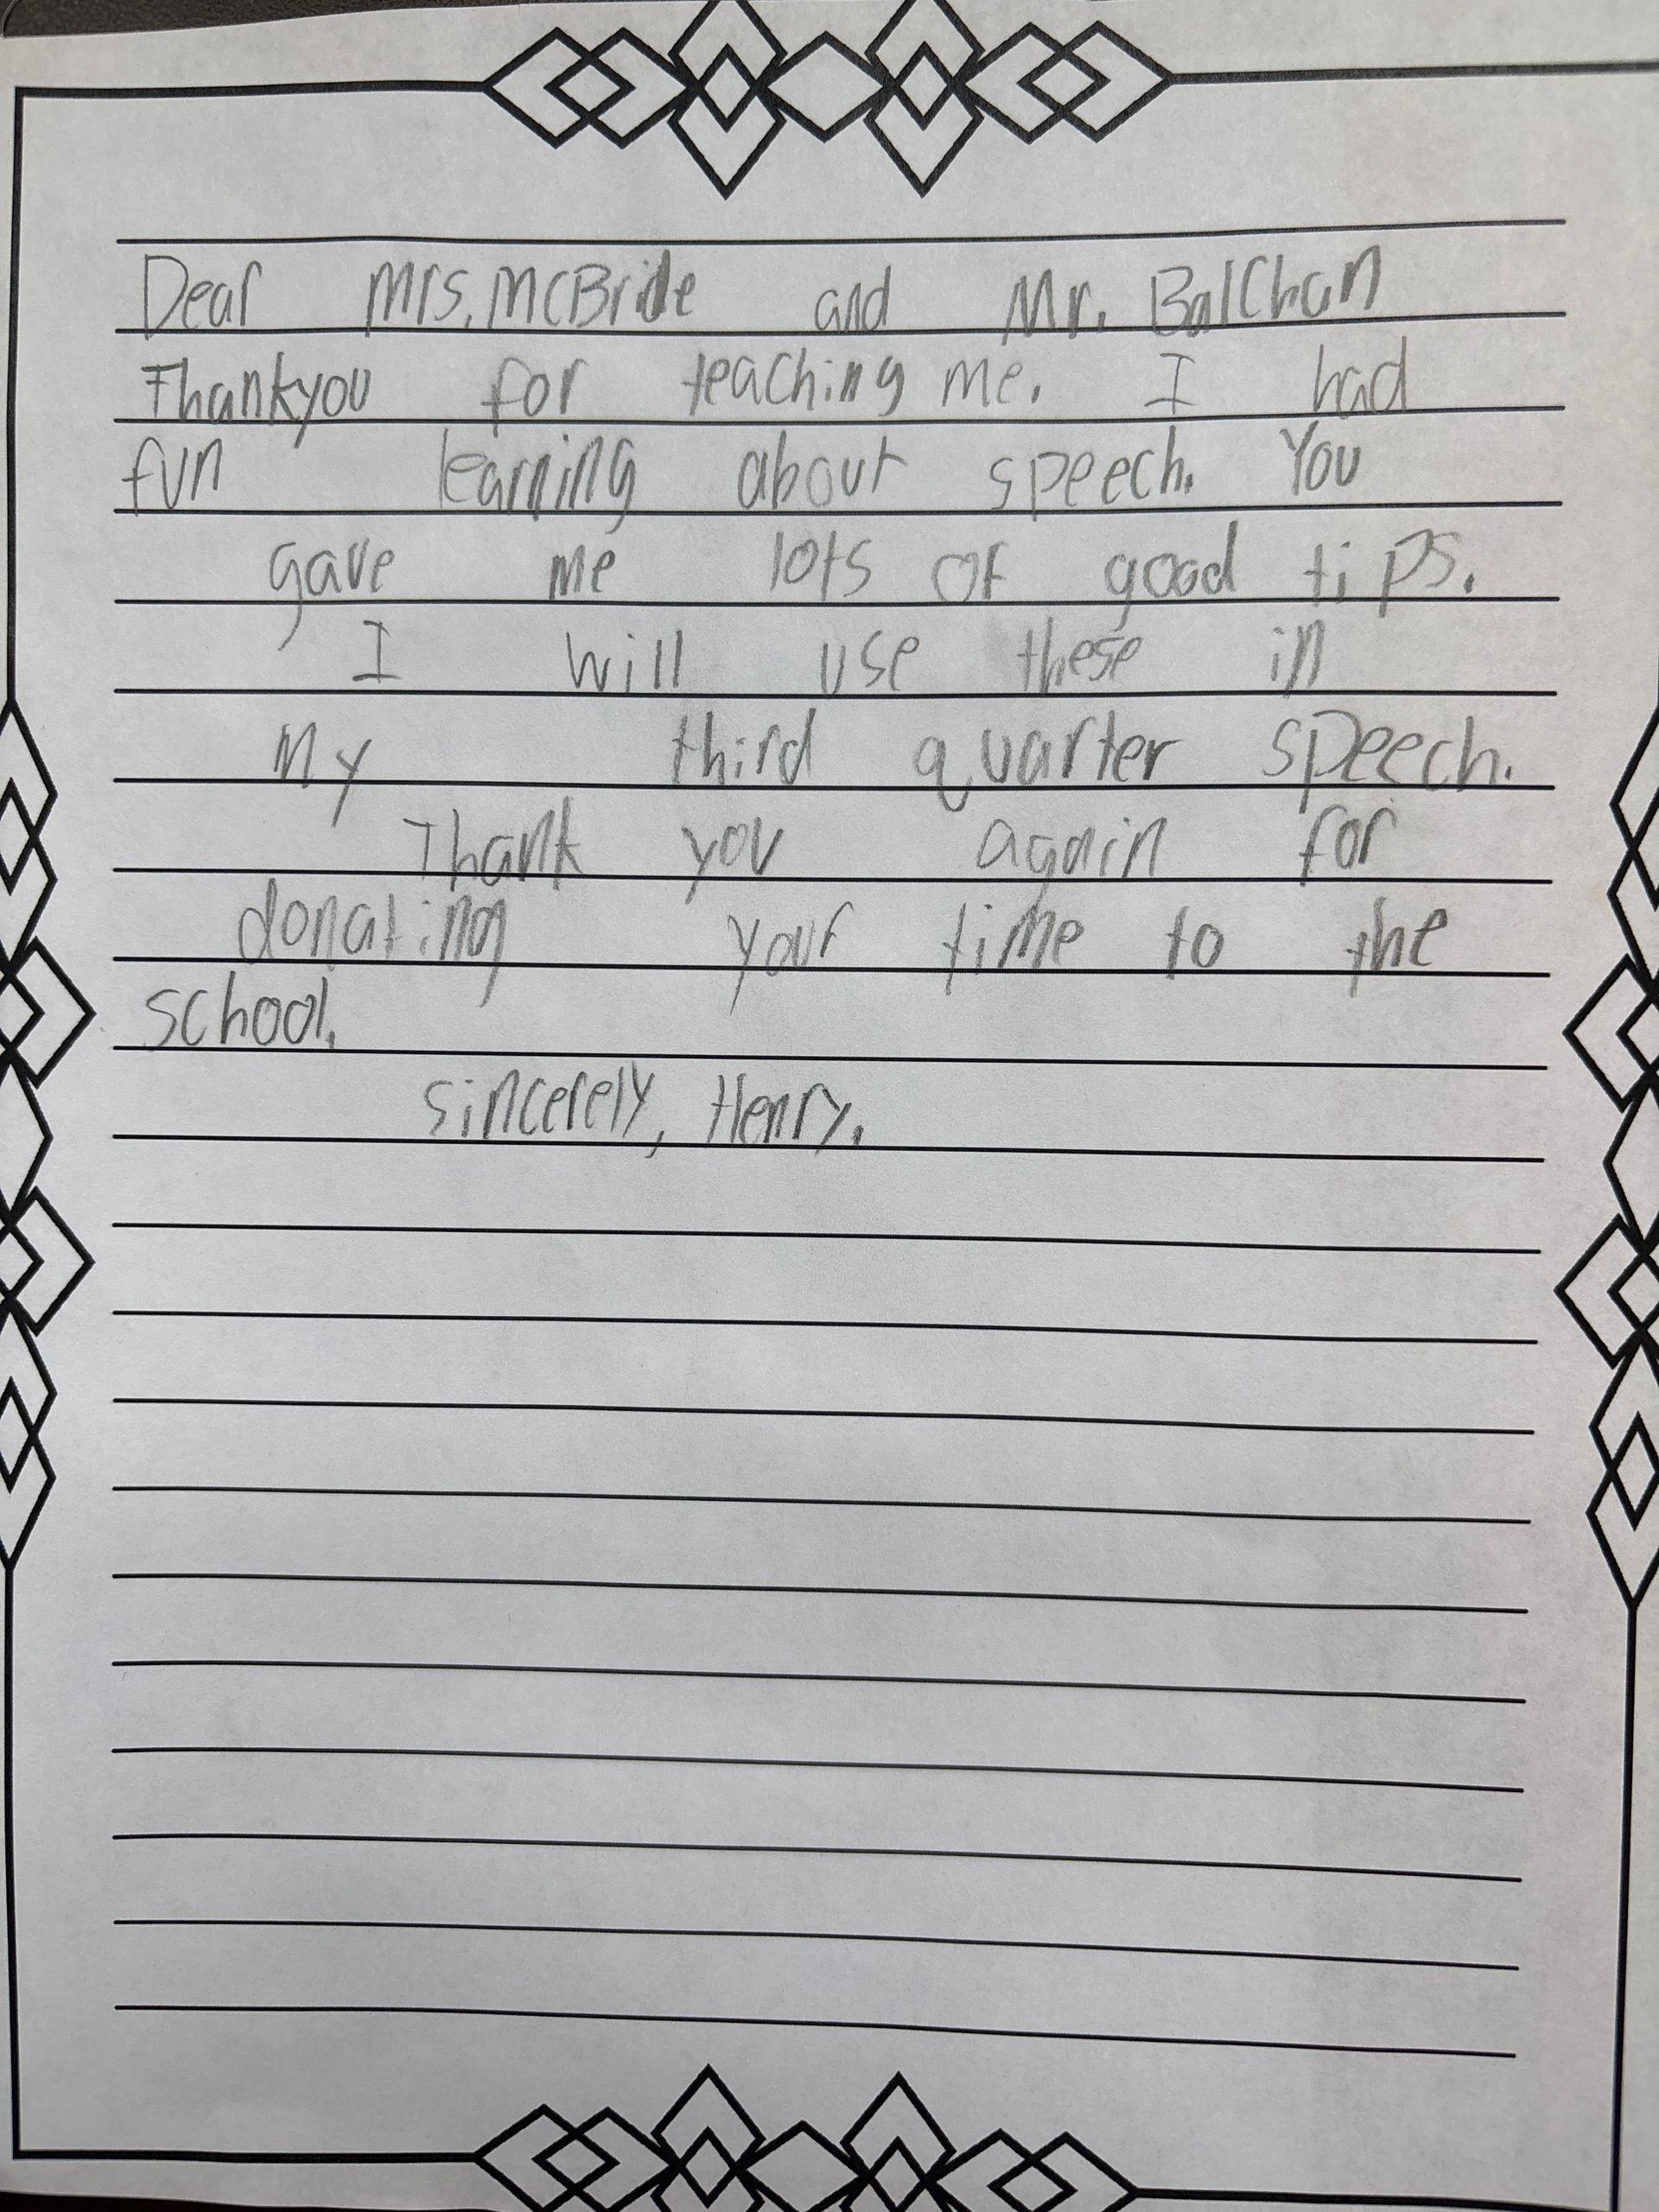 Dear Mrs. McBride and Mr. BalChan
Thankyou for teaching me. I had
fun learning about speech. You
gave me lots of good tips.
I will use these in
My third quarter speech.
Thank you again for
donating your time to the
school.
sincerely, Henry.